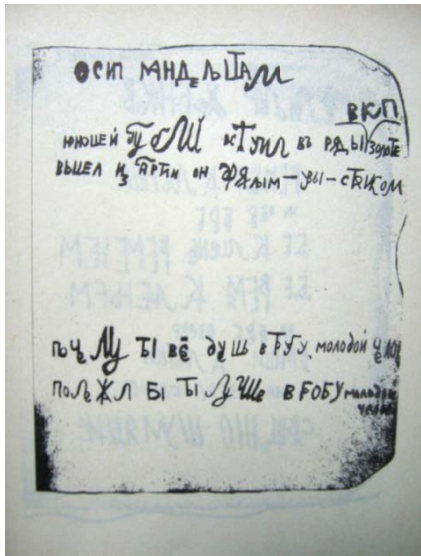 ОСИП МАНДЕЛЬШТАМ
ВКП
юношей Публий вступил въ ряды золотые
вышел из партии он дряхлым — увы — стариком
почему ты всё дуешь в трубу, молодой человек
полежал бы ты лучше в гробу молодой
человек